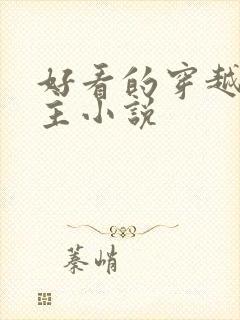 好看的穿越
主小说
蓁峭